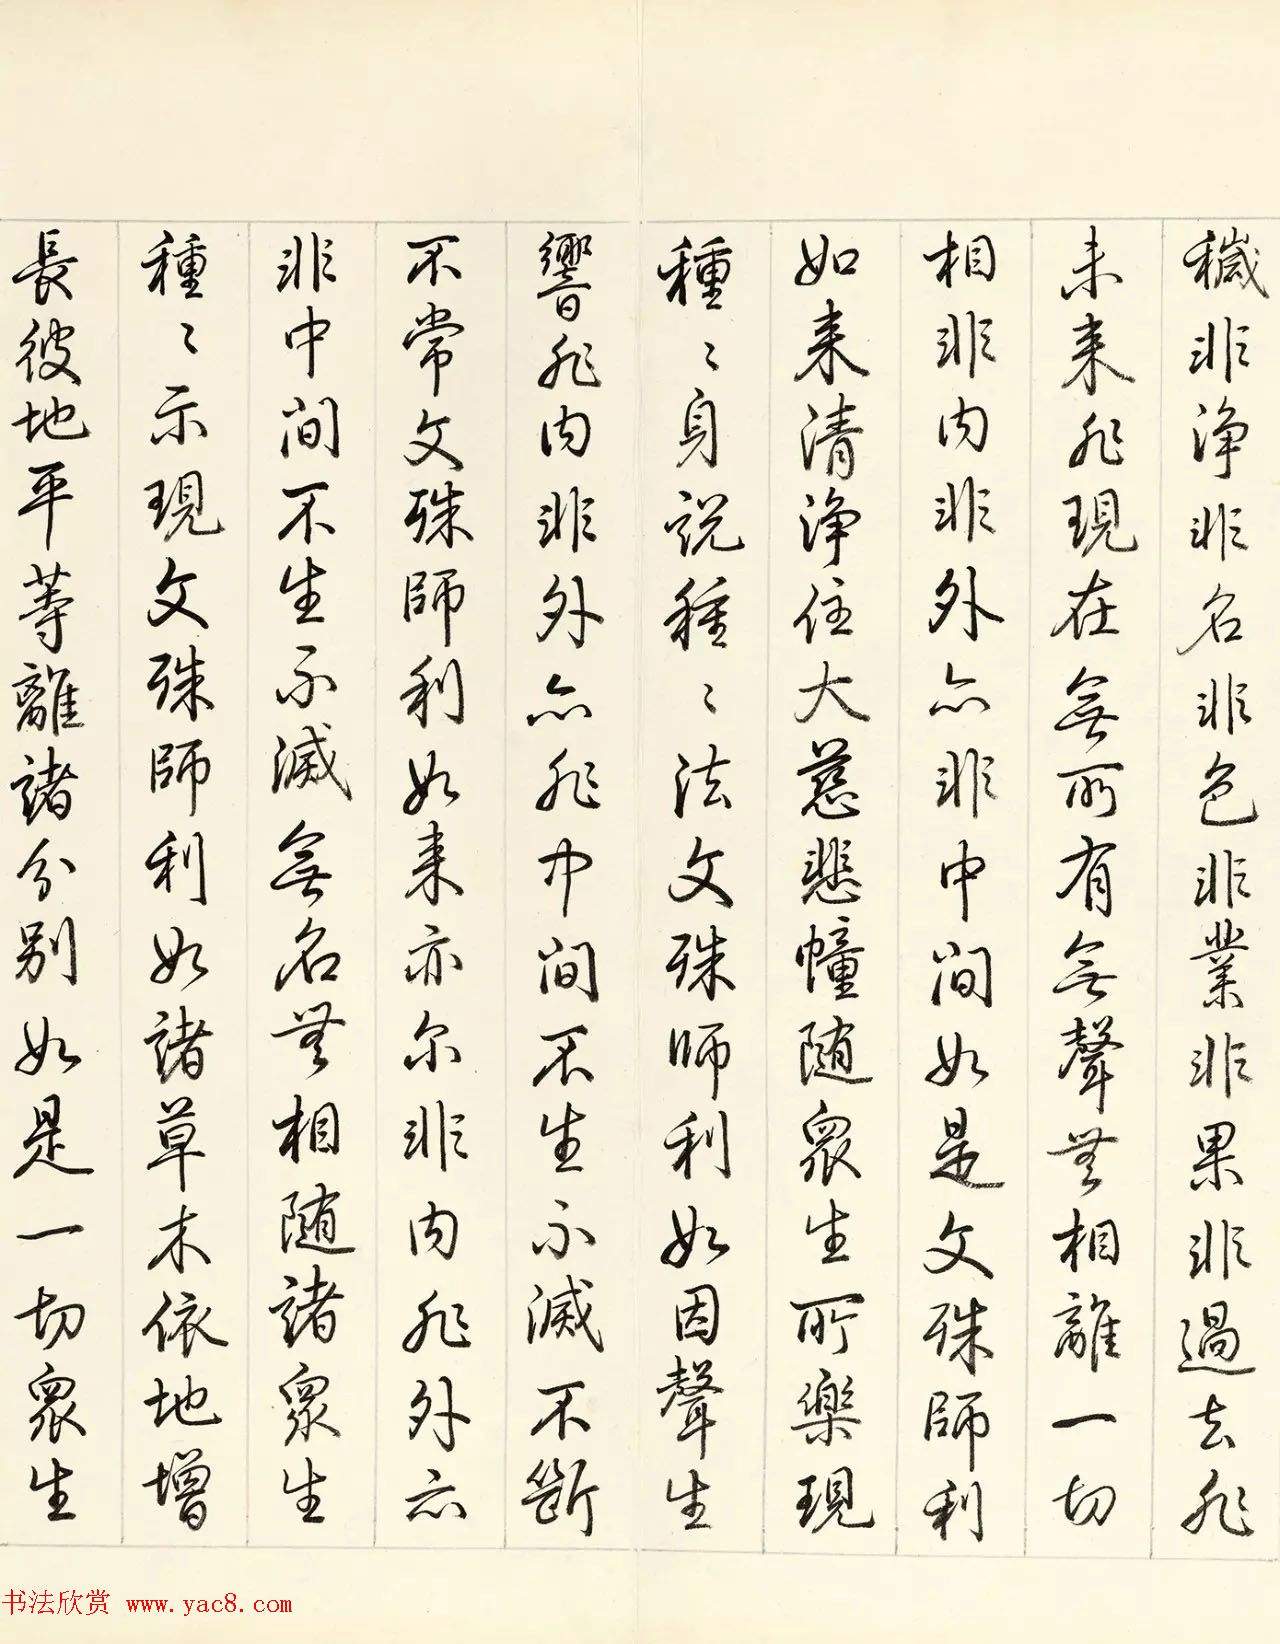 穢非淨非名非色非業非果非過去非
未来非現在無所有無聲無相離一切
相非内非外亦非中间如是文殊師利
如来清淨住大慈悲幢随衆生所樂現
種〻身説種〻法文殊師利如因聲生
響非内非外亦非中间不生不滅不斷
不常文殊師利如来亦尔非内非外亦
非中间不生不滅無名無相随諸衆生
種〻示現文殊師利如諸草木依地增
長彼地平等離諸分别如是一切衆生
书法欣赏 www.yac8.com